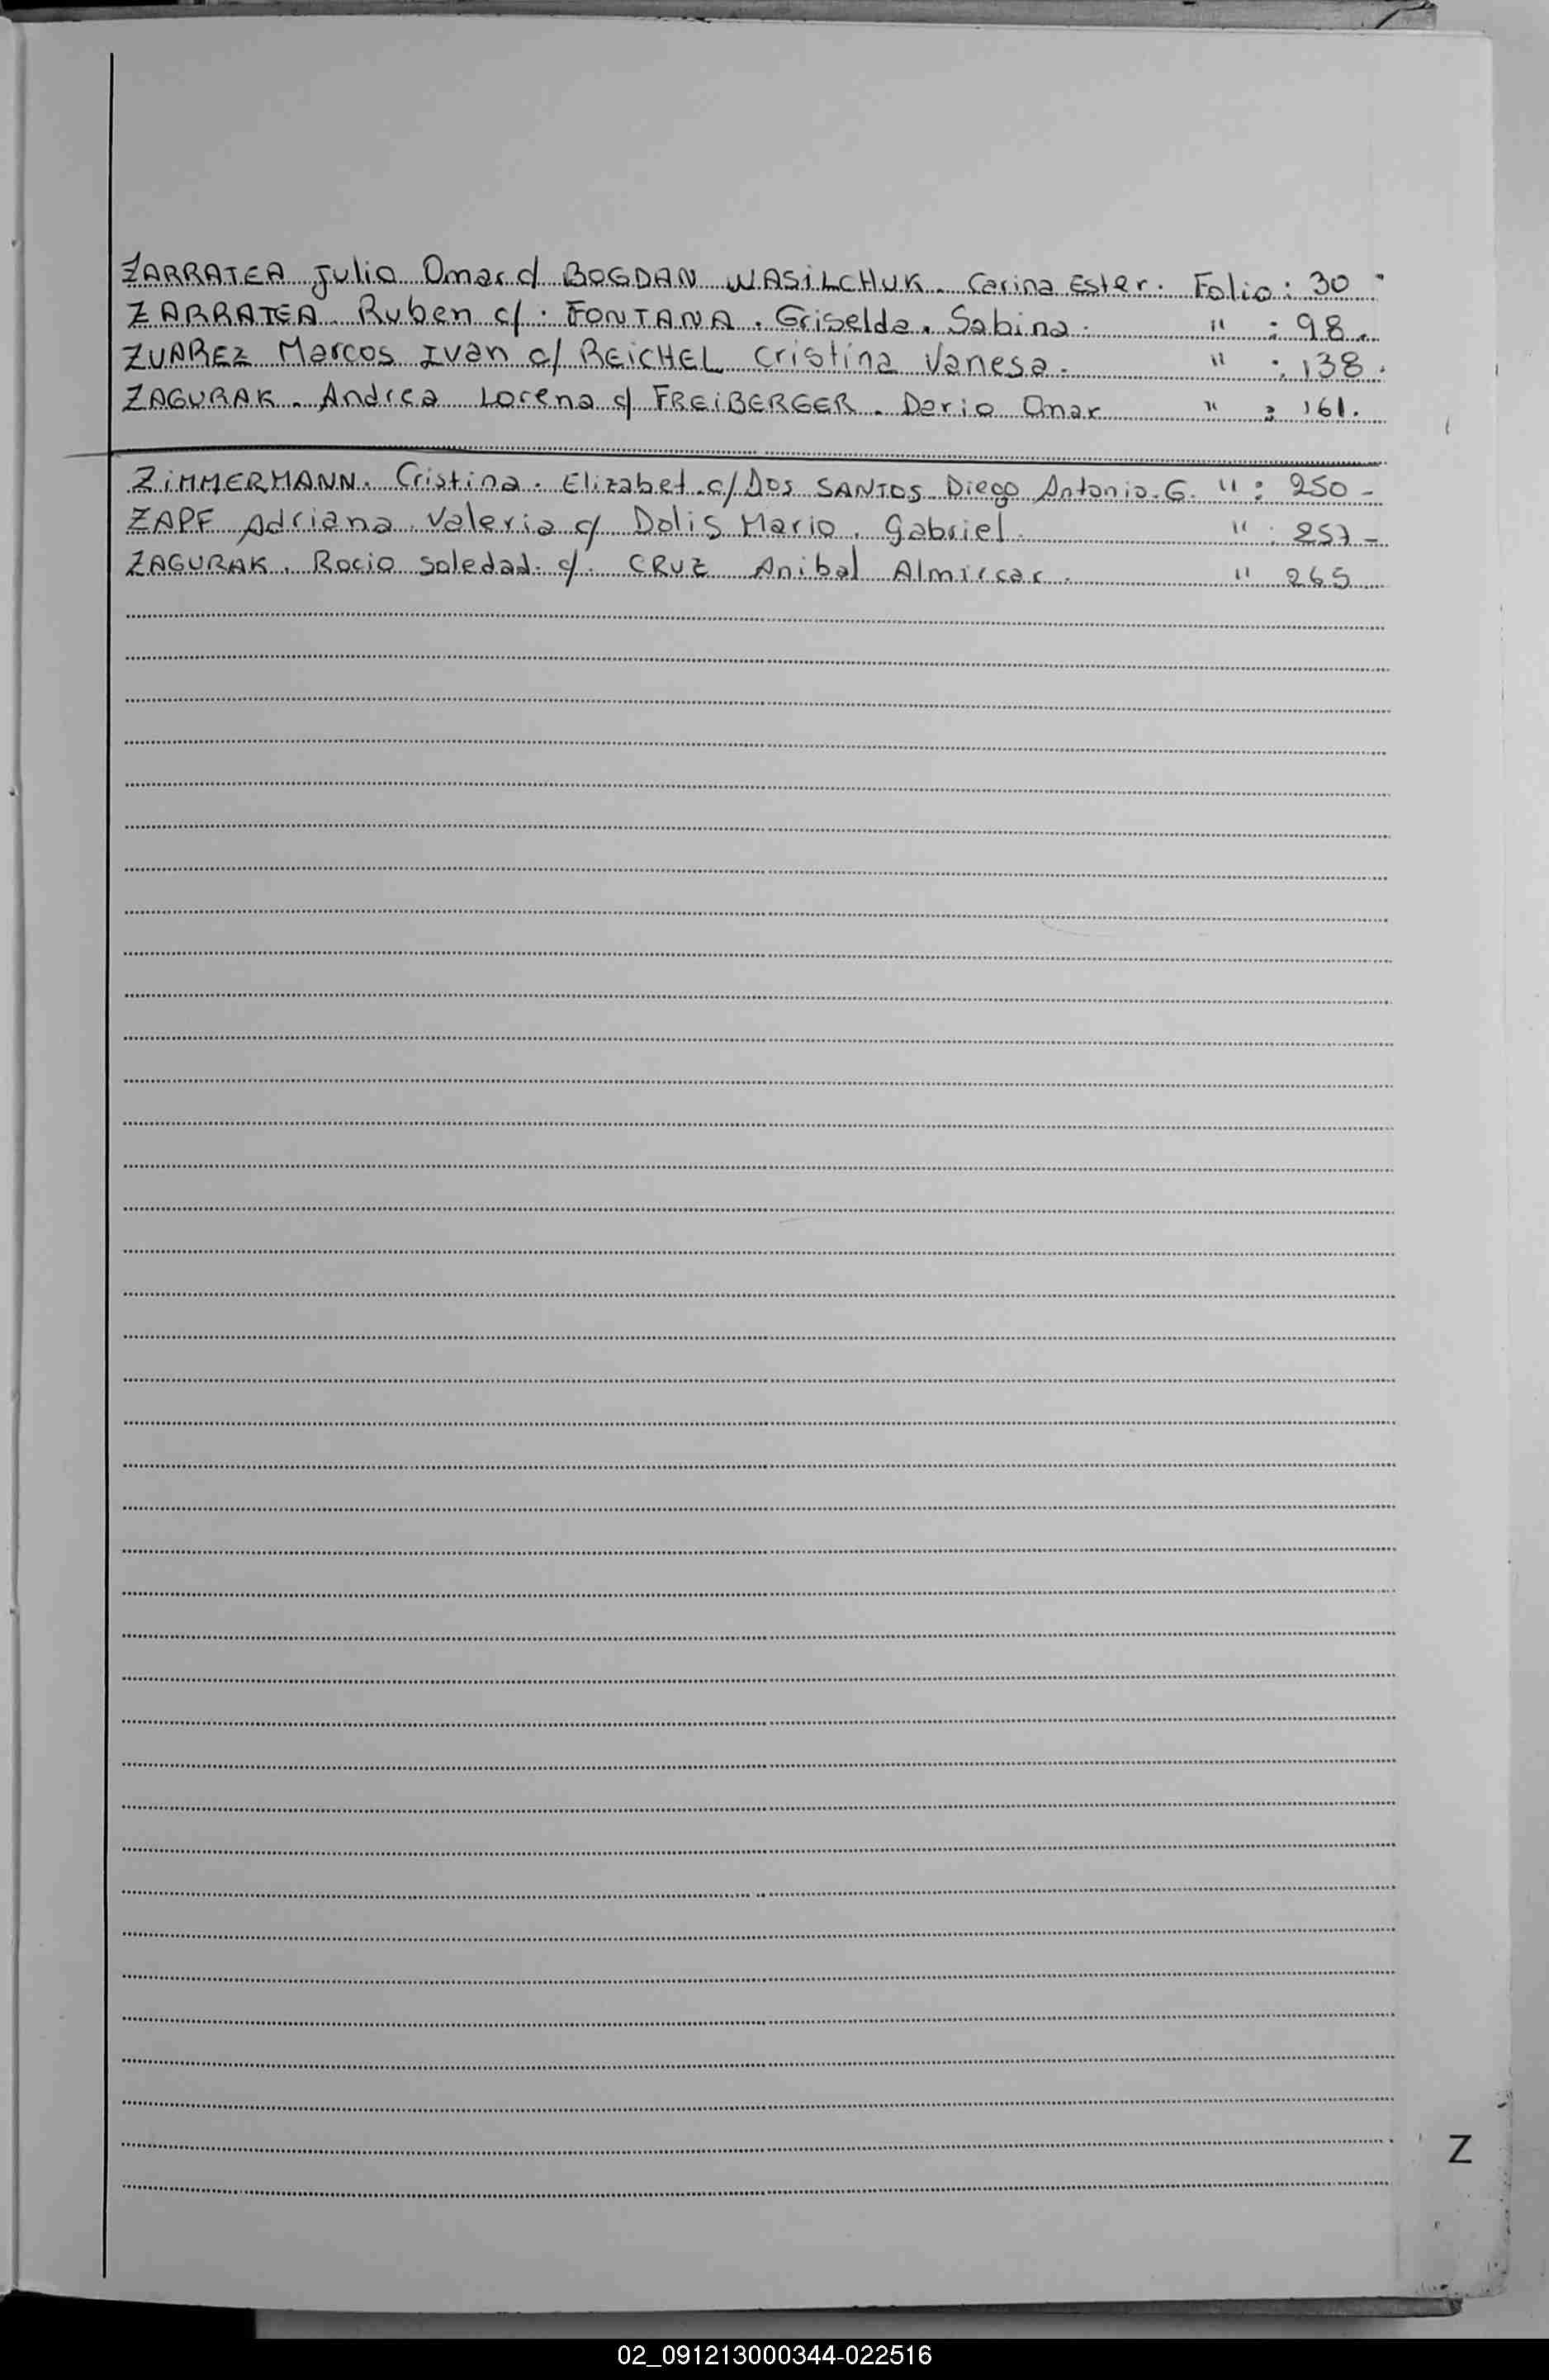 ZARRATEA Julio Omar c/ BOGDAN WASILCHUK. Carina Ester. Folio: 30
ZARRATEA. Ruben c/. FONTANA. Griselda. Sabina. " : 98.
ZUAREZ Marcos Ivan c/ REICHEL Cristina Vanesa. " : 138.
ZAGURAK. Andrea Lorena c/ FREIBERGER. Dario Omar " : 161.
ZIMMERMANN. Cristina. Elizabet. c/ Dos SANTOS. Diego Antonio. G. " : 250 -
ZAPF Adriana. Valeria c/ Dolis Mario. Gabriel. " : 257 -
ZAGURAK. Rocio Soledad. c/. CRUZ Anibal Almircar. " 265
Z
02_091213000344-022516